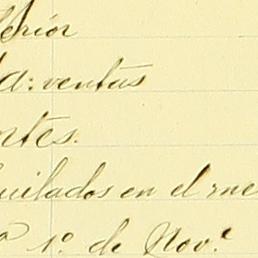 terior
a: ventas
ntes.
uilados en el me
a 1º de Novº